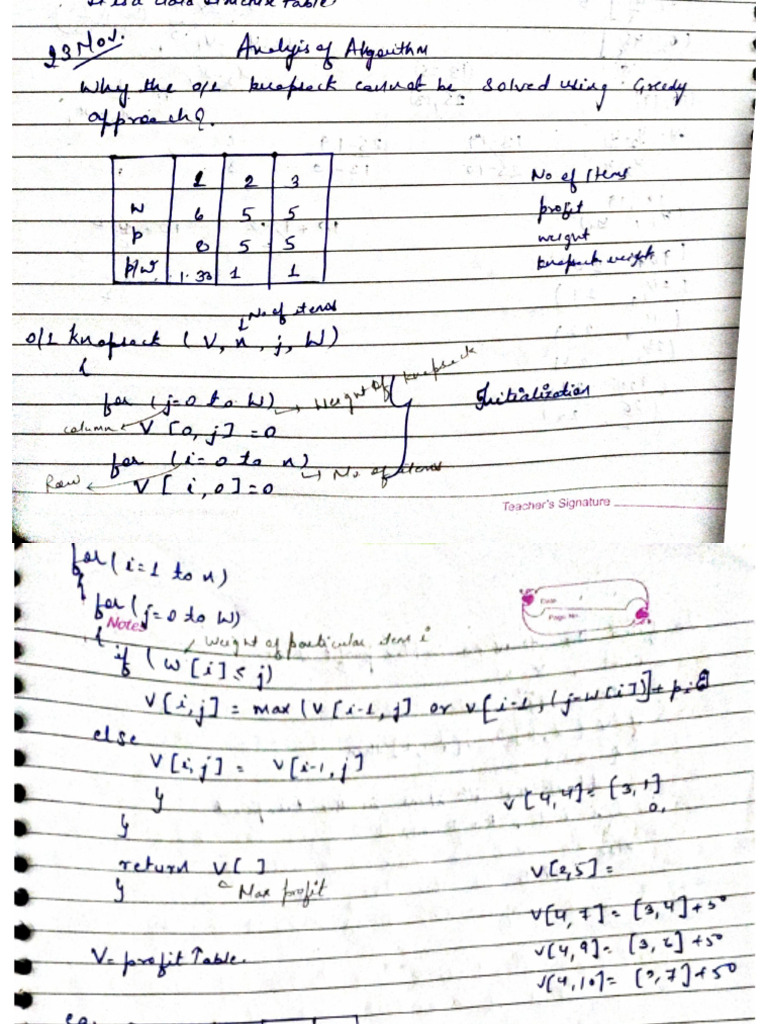 23 Nov.
Analysis of Algorithm
Why the 0/1 knapsack cannot be solved using Greedy
approach?
1 2 3
W 6 5 5
P 8 5 5
P/W 1.33 1 1
No of Items
profit
weight
knapsack weight
No of items
0/1 knapsack (V, n, j, W)
{
for (j=0 to W) → Weight of knapsack
column ← V [0, j] = 0
Initialization
for (i=0 to n) → No of items
Row ← V [i, 0] = 0
Teacher's Signature
for (i=1 to n)
{
for (j=0 to W)
Notes
Date
Page No.
{ weight of particular item i
if (W[i] ≤ j)
V[i,j] = max (V[i-1, j] or V[i-1, (j-W[i])] + pi
else
V[i,j] = V[i-1, j]
}
V[4,4] = [3,1]
0,
}
return V[ ]
V[2,5] =
} Max profit
V[4,7] = [3,4]+50
V[4,9] = [3,6]+50
V= profit Table.
V[4,10] = [3,7]+50
eg.